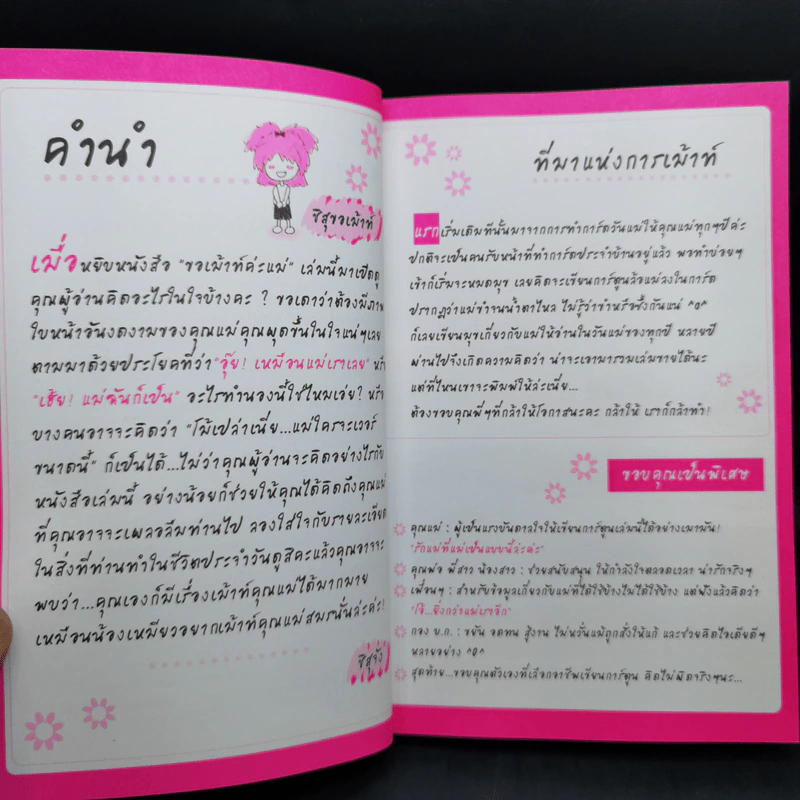 คำนำ
ชิสุขอเม้าท์
เมื่อหยิบหนังสือ "ขอเม้าท์ค่ะแม่" เล่มนี้มาเปิดดู
คุณผู้อ่านคิดอะไรในใจบ้างคะ ? ขอเดาว่าต้องมีภาพ
ใบหน้าอันงดงามของคุณแม่คุณผุดขึ้นในใจแน่ๆเลย
ตามมาด้วยประโยคที่ว่า"อุ๊ย! เหมือนแม่เราเลย" หรือ
"เฮ้ย! แม่ฉันก็เป็น" อะไรทำนองนี้ใช่ไหมเอ่ย? หรือ
บางคนอาจจะคิดว่า "โม้เปล่าเนี่ย...แม่ใครจะเวอร์
ขนาดนี้" ก็เป็นได้...ไม่ว่าคุณผู้อ่านจะคิดอย่างไรกับ
หนังสือเล่มนี้ อย่างน้อยก็ช่วยให้คุณได้คิดถึงคุณแม่
ที่คุณอาจจะเผลอลืมท่านไป ลองใส่ใจกับรายละเอียด
ในสิ่งที่ท่านทำในชีวิตประจำวันดูสิคะแล้วคุณอาจจะ
พบว่า...คุณเองก็มีเรื่องเม้าท์คุณแม่ได้มากมาย
เหมือนน้องเหมียวอยากเม้าท์คุณแม่สมรนั่นล่ะค่ะ!
ชิสุจัง
ที่มาแห่งการเม้าท์
แรกเริ่มเดิมทีนั้นมาจากการทำการ์ดวันแม่ให้คุณแม่ทุกๆปีค่ะ
ปกติจะเป็นคนรับหน้าที่ทำการ์ดประจำบ้านอยู่แล้ว พอทำบ่อยๆ
เข้าก็เริ่มจะหมดมุข เลยคิดจะเขียนการ์ตูนล้อแม่ลงในการ์ด
ปรากฏว่าแม่ขำจนน้ำตาไหล ไม่รู้ว่าขำหรือซึ้งกันแน่ ^o^
ก็เลยเขียนมุขเกี่ยวกับแม่ให้อ่านในวันแม่ของทุกปี หลายปี
ผ่านไปจึงเกิดความคิดว่า น่าจะเอามารวมเล่มขายได้นะ
แต่ที่ไหนเขาจะพิมพ์ให้ล่ะเนี่ย...
ต้องขอบคุณพี่ๆที่กล้าให้โอกาสนะคะ กล้าให้ เราก็กล้าทำ!
ขอบคุณเป็นพิเศษ
คุณแม่ : ผู้เป็นแรงบันดาลใจให้เขียนการ์ตูนเล่มนี้ได้อย่างเมามัน!
"รักแม่ที่แม่เป็นแบบนี้ล่ะค่ะ"
คุณพ่อ พี่สาว น้องสาว : ช่วยสนับสนุน ให้กำลังใจตลอดเวลา น่ารักจริงๆ
เพื่อนๆ : สำหรับข้อมูลเกี่ยวกับแม่ที่ได้ใช้บ้างไม่ได้ใช้บ้าง แต่ฟังแล้วคิดว่า
"โอ้...ยิ่งกว่าแม่เราอีก"
กอง บ.ก. : ขยัน อดทน สู้งาน ไม่หวั่นแม้ถูกสั่งให้แก้ และช่วยคิดไอเดียดีๆ
หลายอย่าง ^0^
สุดท้าย...ขอบคุณตัวเองที่เลือกอาชีพเขียนการ์ตูน คิดไม่ผิดจริงๆนะ...